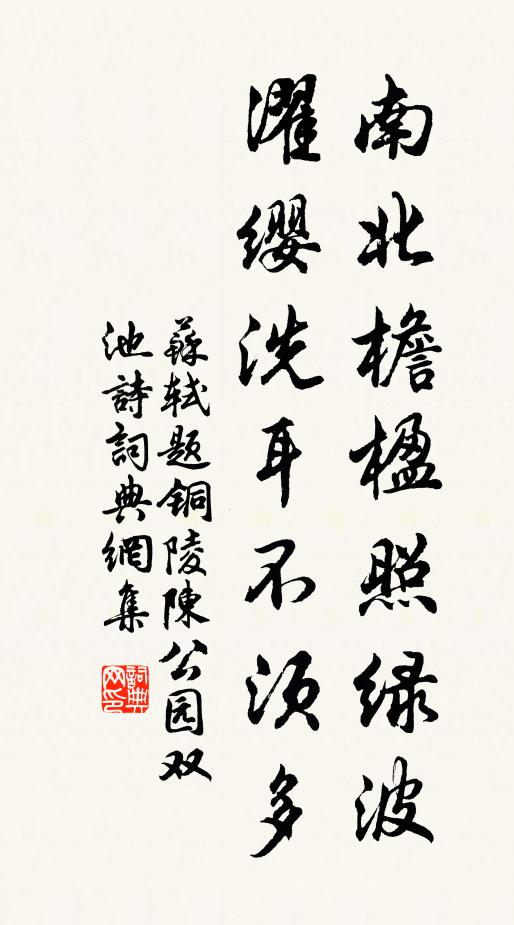 南北檐楹照绿波
濯缨洗耳不须多
蘇軾题铜陵陳公园双
池詩詞典網集
詞典
网印